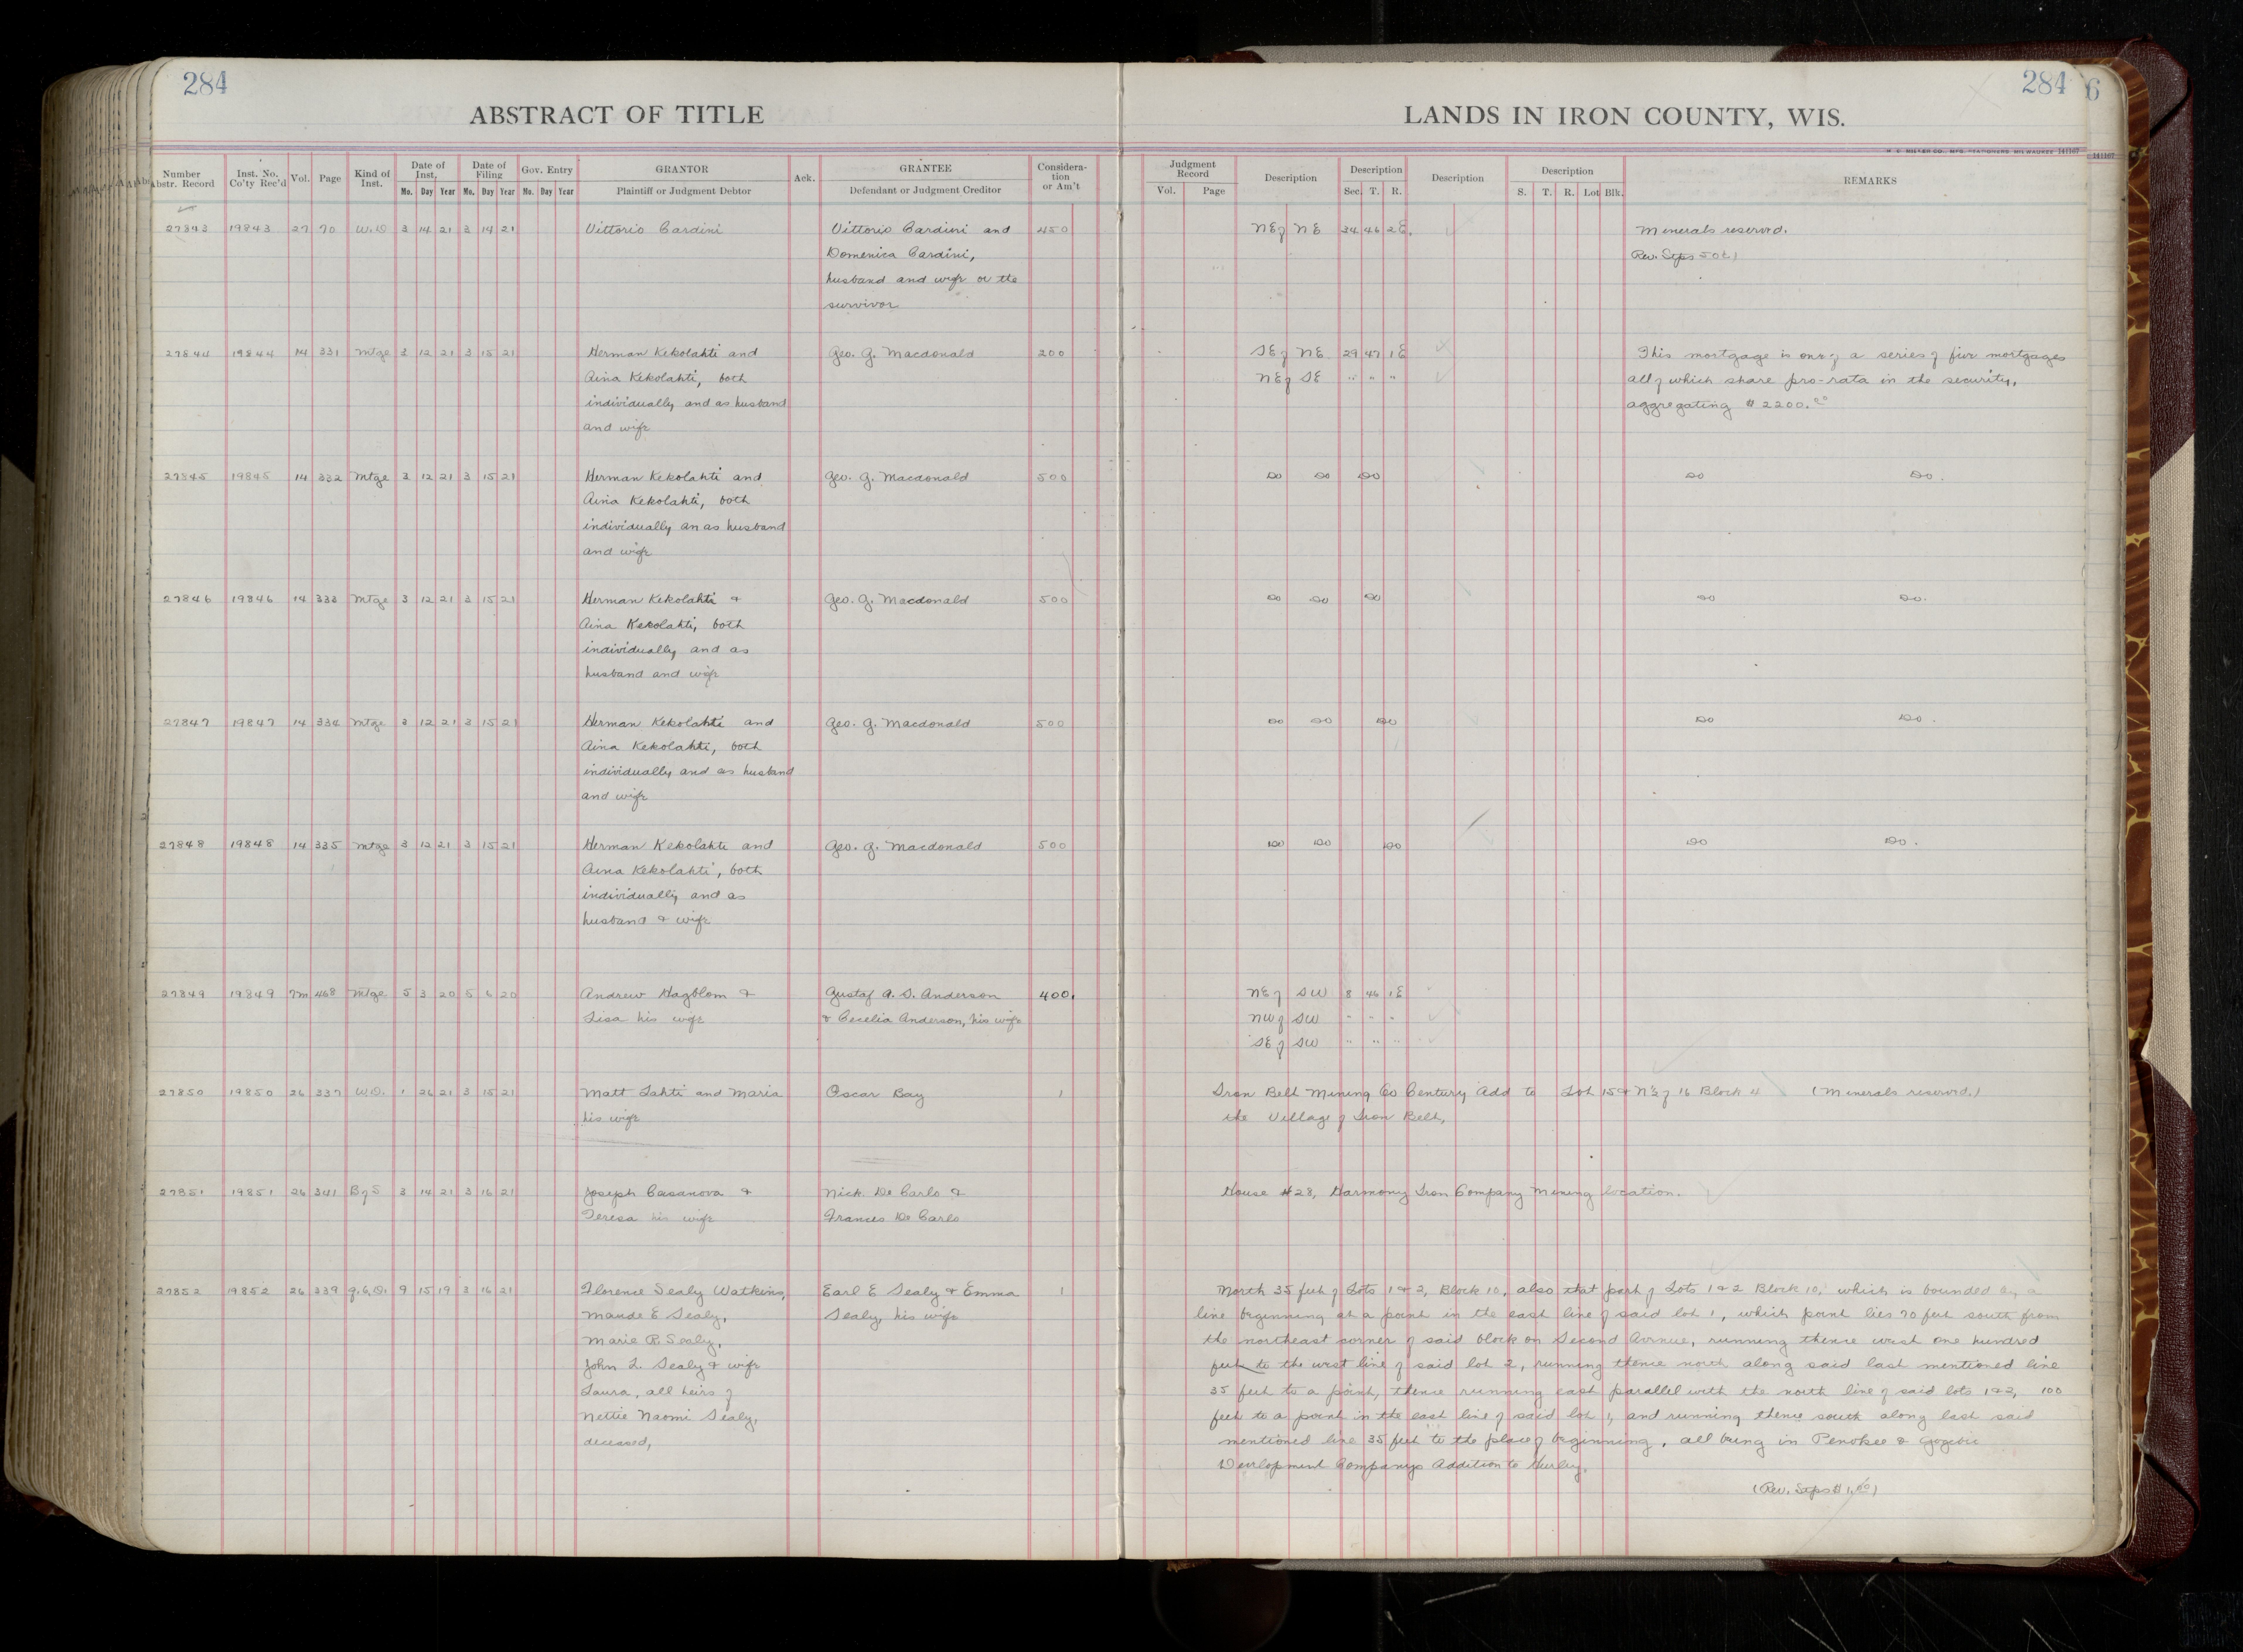 284
284
6
ABSTRACT OF TITLE
LANDS IN IRON COUNTY, WIS.
Number Abstr. Record Inst. No. Co'ty Rec'd Vol. Page Kind of Inst. Date of Inst. Mo. Day Year Date of Filing Mo. Day Year Gov. Entry Mo. Day Year GRANTOR Plaintiff or Judgment Debtor Ack. GRANTEE Defendant or Judgment Creditor Considera-tion or Am't
Judgment Record Vol. Page Description Description Sec. T. R. Description Description S. T. R. Lot Blk. REMARKS
141167
141167
27843 19843 27 70 W.D 3 14 21 3 14 21 Vittorio Cardini Vittorio Cardini and 450 NE of NE 34 46 2E. Minerals reserved.
Domenica Cardini, Rev. Stps 50¢)
husband and wife or the
survivor
27844 19844 14 331 Mtge 3 12 21 3 15 21 Herman Kekolahti and Geo. G. Macdonald 200 SE of NE 29 47 1E This mortgage is one of a series of five mortgages
Aina Kekolahti, both NE of SE " " " all of which share pro-rata in the security,
individually and as husband aggregating $2200.00
and wife
27845 19845 14 332 Mtge 3 12 21 3 15 21 Herman Kekolahti and Geo. G. Macdonald 500 Do Do Do Do Do.
Aina Kekolahti, both
individually an as husband
and wife
27846 19846 14 333 Mtge 3 12 21 3 15 21 Herman Kekolahti & Geo. G. Macdonald 500 Do Do Do Do Do.
Aina Kekolahti, both
individually and as
husband and wife
27847 19847 14 334 Mtge 3 12 21 3 15 21 Herman Kekolahti and Geo. G. Macdonald 500 Do Do Do Do Do.
Aina Kekolahti, both
individually and as husband
and wife
27848 19848 14 335 Mtge 3 12 21 3 15 21 Herman Kekolahti and Geo. G. Macdonald 500 Do Do Do Do Do.
Aina Kekolahti, both
individually and as
husband & wife
27849 19849 7m 468 Mtge 5 3 20 5 6 20 Andrew Hagblom & Gustaf A. S. Anderson 400. NE of SW 8 46 1E
Lisa his wife & Cecelia Anderson, his wife NW of SW " " "
SE of SW " " "
27850 19850 26 337 W.D. 1 26 21 3 15 21 Matt Lahti and Maria Oscar Bay 1 Iron Belt Mining Co Century Add to Lot 15 & N½ of 16 Block 4 (Minerals reserved.)
his wife the Village of Iron Belt,
27851 19851 26 341 B of S 3 14 21 3 16 21 Joseph Casanova & Nick De Carlo & House #28, Harmony Iron Company Mining location.
Teresa his wife Frances De Carlo
27852 19852 26 339 Q.C.D. 9 15 19 3 16 21 Florence Sealy Watkins, Earl E Sealy & Emma 1 North 35 feet of Lots 1 & 2, Block 10, also that part of Lots 1 & 2 Block 10, which is bounded by a
Maude E Sealy, Sealy, his wife line beginning at a point in the east line of said lot 1, which point lies 70 feet south from
Marie R. Sealy, the northeast corner of said block on Second Avenue, running thence west one hundred
John L. Sealy & wife feet to the west line of said lot 2, running thence north along said last mentioned line
Laura, all heirs of 35 feet to a point, thence running east parallel with the north line of said lots 1 & 2, 100
Nettie Naomi Sealy, feet to a point in the east line of said lot 1, and running thence south along last said
deceased, mentioned line 35 feet to the place of beginning, all being in Penokee & Gogebic
Development Companys Addition to Hurley.
(Rev. Stps $1.00)